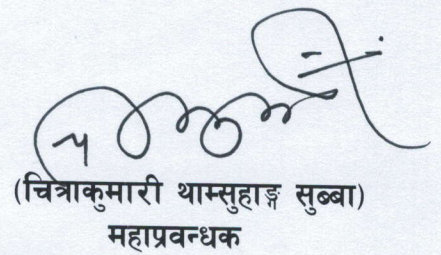 (चित्राकुमारी थाम्सुहाङ्ग सुब्बा)
महाप्रवन्धक